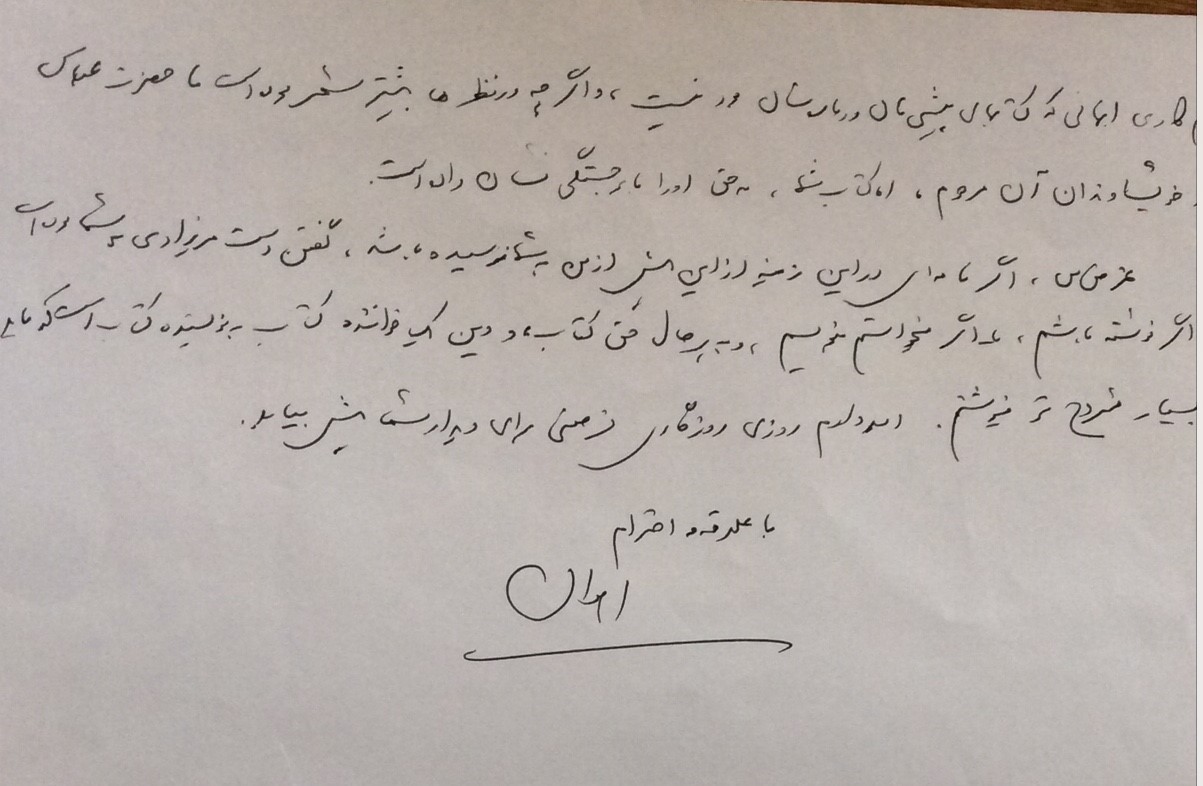 کاری آنهائی که کتابهای پیشی‌مان درباره‌شان بود نیست، و اگر چه در نظر ما بیشتر شمر بوده است تا حضرت عباس
خویشاوندان آن مرحوم، اما کتاب شما، به حق او را با برجستگی نشان داده است.
عزیز من، اگر نامه‌ای در این زمینه از این پیش از من به شما نرسیده باشد، گفتن دست مریزادی به شما بوده است
اگر نوشته باشم، یا اگر میخواستم بنویسم، و به هر حال حق کتاب، و دین یک خواننده کتاب به نویسنده کتاب است که باید
بسیار مشروح تر مینوشتم. امیدوارم روزی روزگاری فرصتی برای دیدار شما پیش بیاید.
با علاقه و احترام